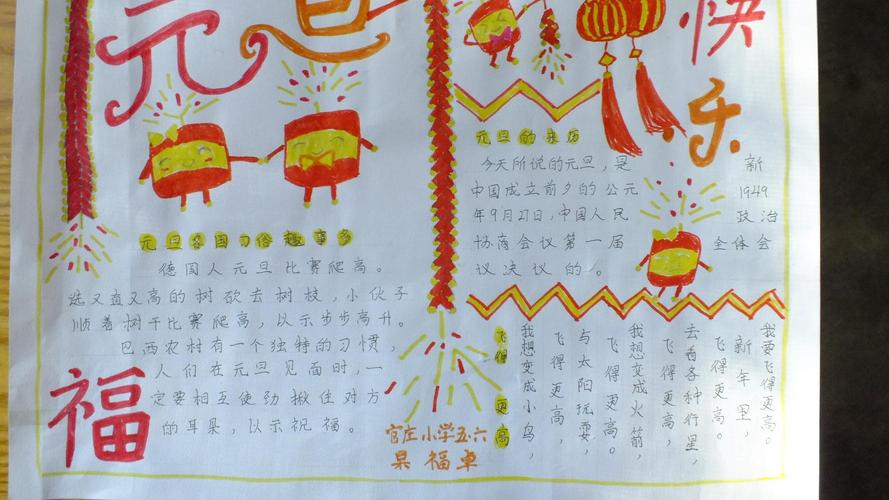 元旦
快
乐
元旦各国习俗趣事多
德国人元旦比赛爬高。
选又直又高的树砍去树枝，小伙子
顺着树干比赛爬高，以示步步高升。
巴西农村有一个独特的习惯，
人们在元旦见面时，一
定要相互使劲揪住对方
的耳朵，以示祝福。
福
元旦的来历
今天所说的元旦，是新
中国成立前夕的公元1949
年9月27日，中国人民政治
协商会议第一届全体会
议决议的。
飞得更高
我要飞得更高。
新年里，
飞得更高。
去看各种行星，
飞得更高，
我想变成火箭，
飞得更高。
与太阳玩耍，
飞得更高，
我想变成小鸟，
官庄小学五.六
福卓